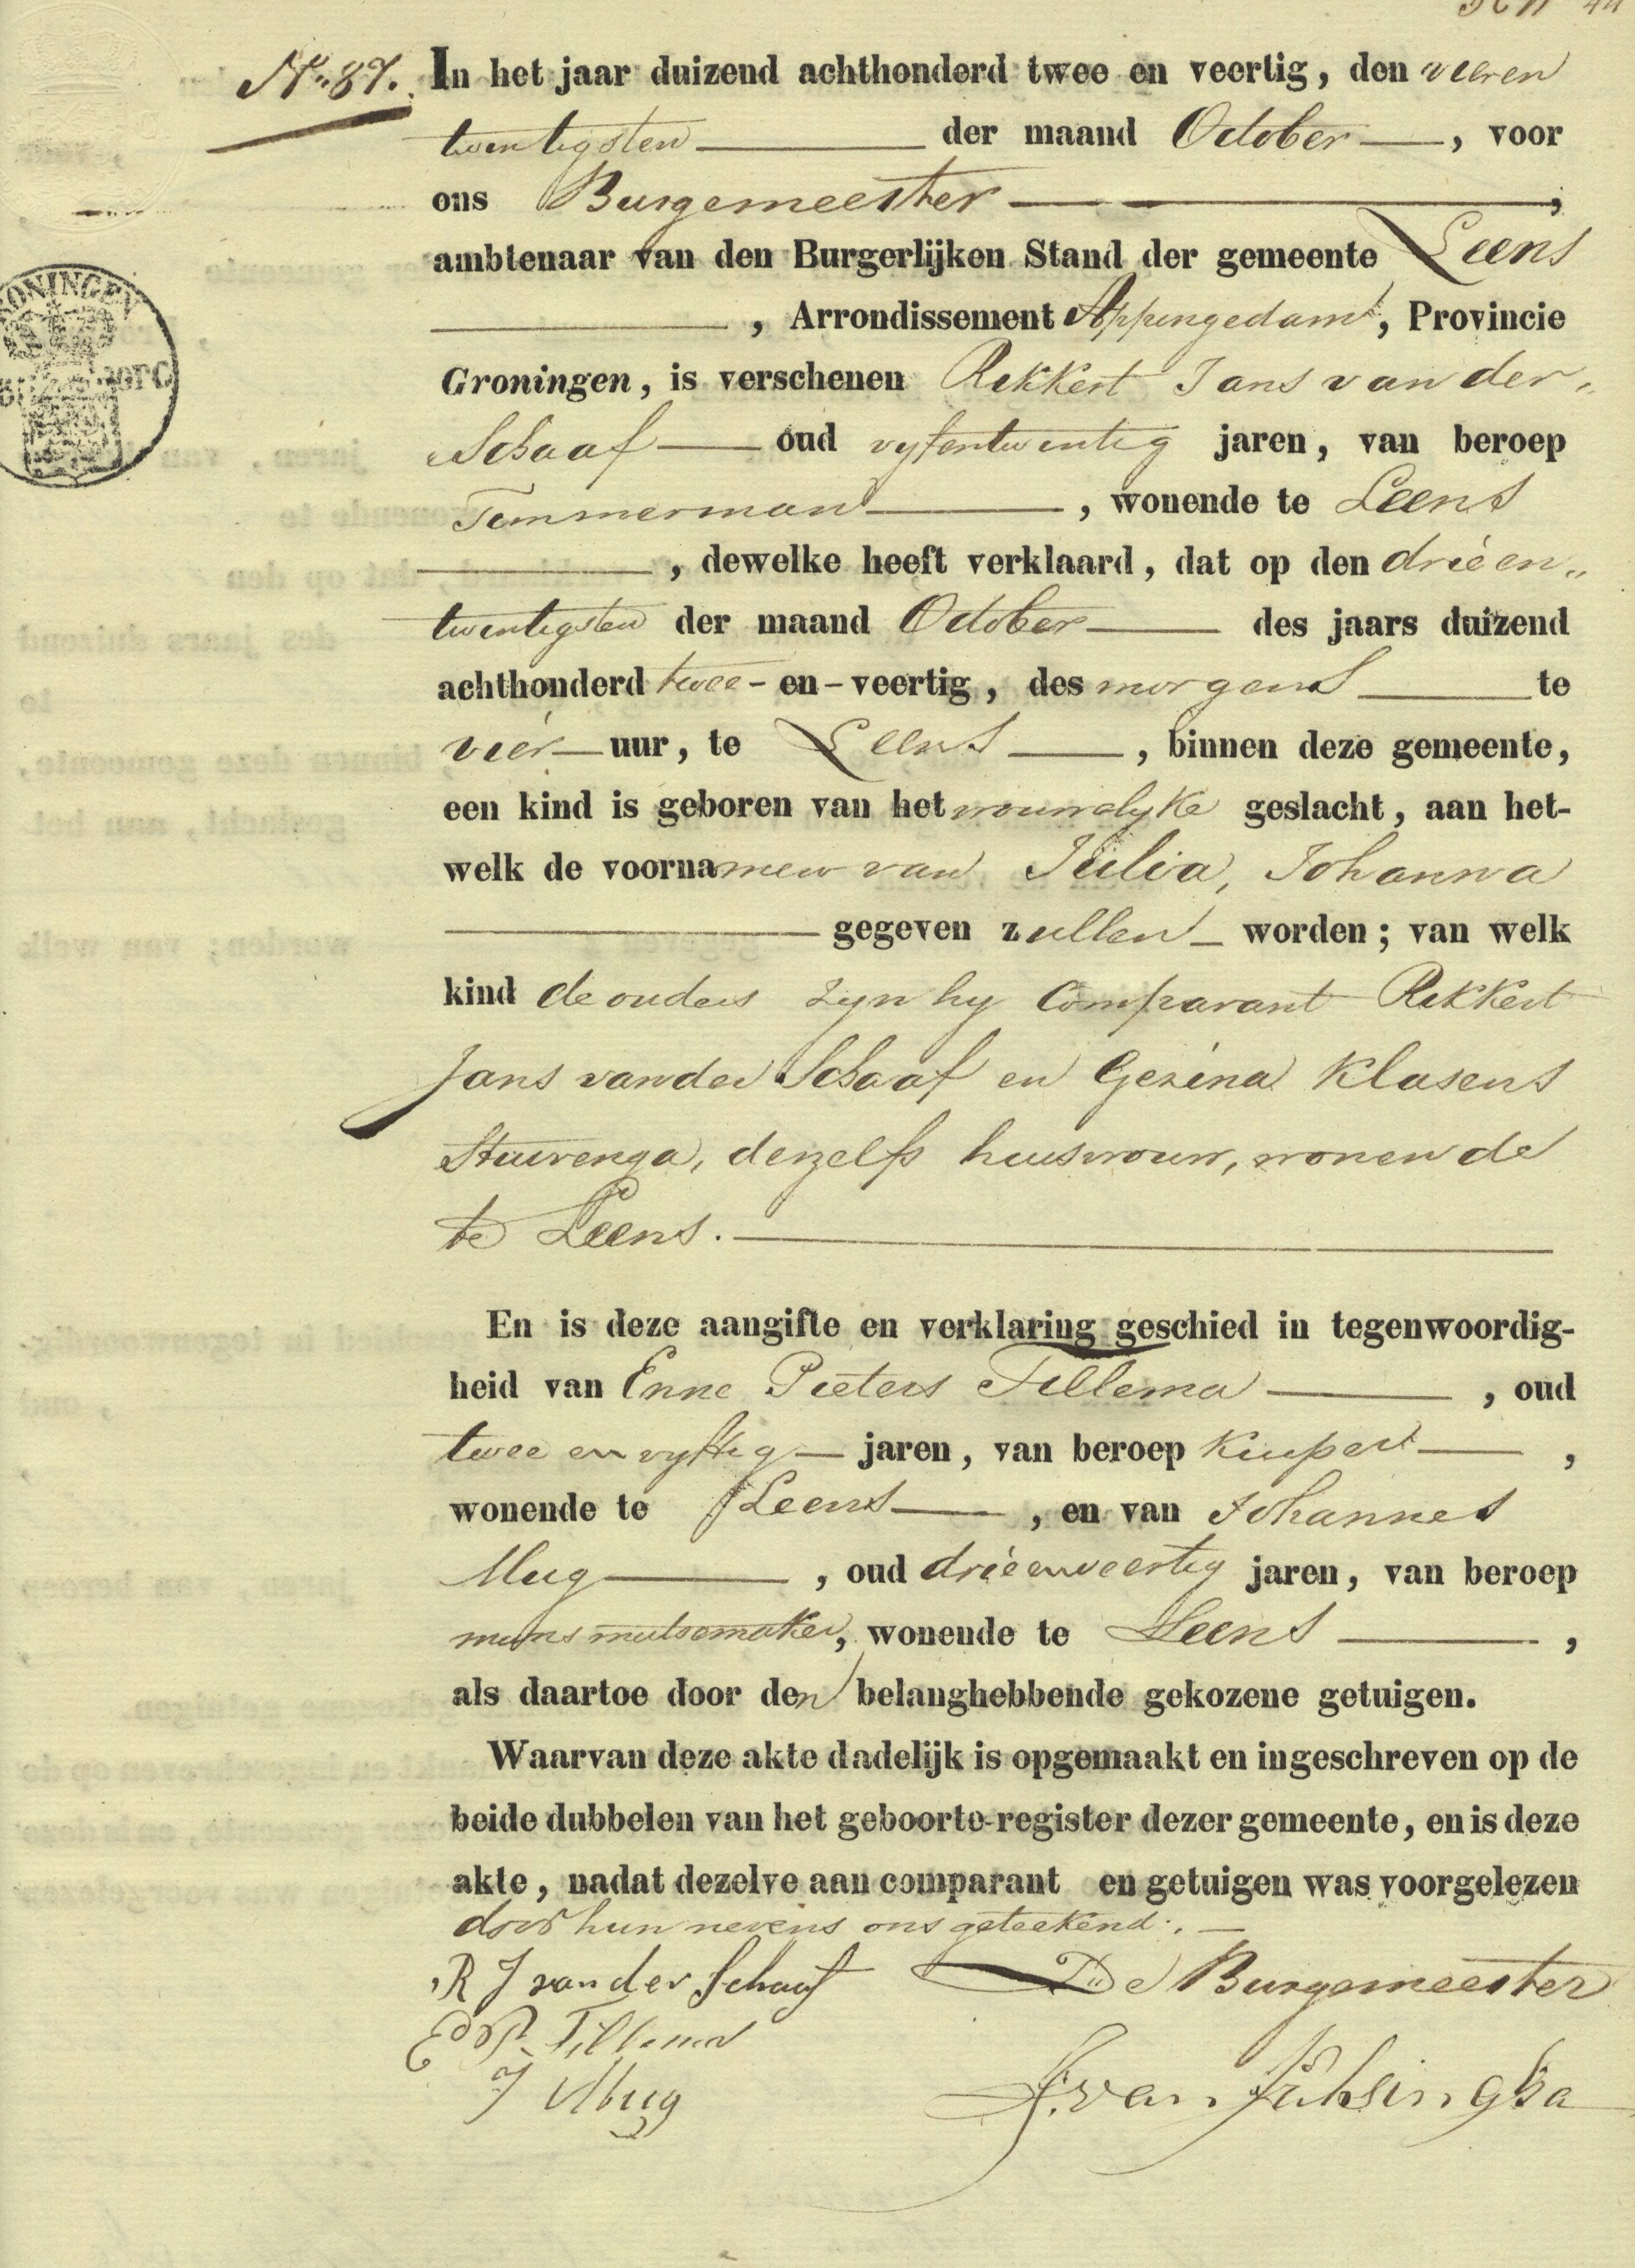 No. 87.
In het jaar duizend achthonderd twee en veertig, den vieren
twentigsten der maand October, voor
ons Burgemeester,
ambtenaar van den Burgerlijken Stand der gemeente Leens
, Arrondissement Appingedam, Provincie
Groningen, is verschenen Rekkert Jans van der
Schaaf oud vyfentwentig jaren, van beroep
Temmerman, wonende te Leens
, dewelke heeft verklaard, dat op den drieen„
twentigsten der maand October des jaars duizend
achthonderd twee-en-veertig, des morgens te
vier uur, te Leens, binnen deze gemeente,
een kind is geboren van het vrouwelyke geslacht, aan het-
welk de voornamen van Julia, Johanna
gegeven zullen worden; van welk
kind de ouders zyn hy Comparant Rekkert
Jans van der Schaaf en Gezina Klasens
Stuivenga, deszelfs huisvrouw, wonende
te Leens.
En is deze aangifte en verklaring geschied in tegenwoordig-
heid van Enne Pieters Tillema, oud
twee en vyftig jaren, van beroep Kuiper,
wonende te Leens, en van Johannes
Mug, oud drieenveertig jaren, van beroep
mutsemaker, wonende te Leens,
als daartoe door den belanghebbende gekozene getuigen.
Waarvan deze akte dadelijk is opgemaakt en ingeschreven op de
beide dubbelen van het geboorte-register dezer gemeente, en is deze
akte, nadat dezelve aan comparant en getuigen was voorgelezen
door hun nevens ons geteekend.
R J van der Schaaf De Burgemeester
E P. Tillema
J Mug